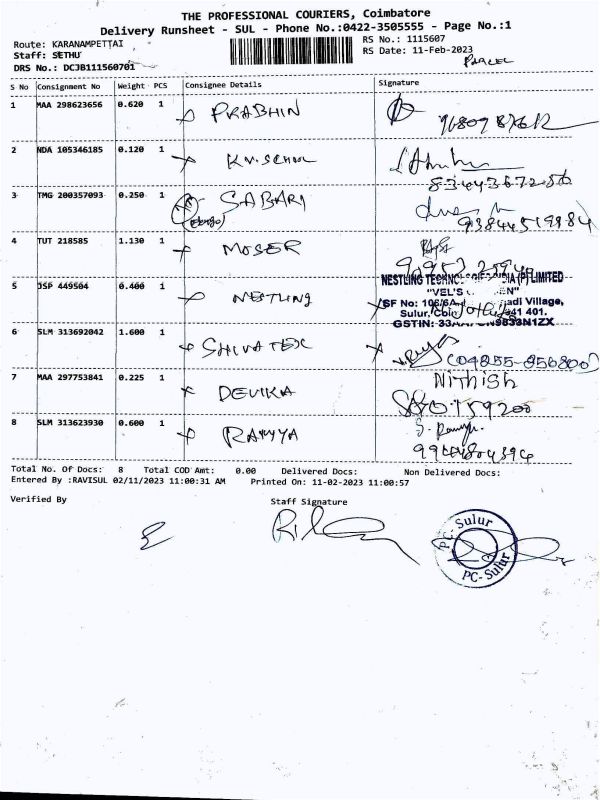 THE PROFESSIONAL COURIERS, Coimbatore
Delivery Runsheet - SUL - Phone No.:0422-3505555 - Page No.:1
Route: KARANAMPETTAI RS No.: 1115607
Staff: SETHU RS Date: 11-Feb-2023
DRS No.: DCJB111560701 PARCEL
S No Consignment No Weight PCS Consignee Details Signature
1 MAA 298623656 0.620 1 PRABHIN
2 NDA 105346185 0.120 1
3 TMG 200357093 0.250 1 SABARI
9384519984
4 TUT 218585 1.130 1 MOSER
5 JSP 449504 0.400 1 NESTLING
NESTLING INDIA (P) LIMITED
"VEL'S
SF No: Village,
Sulur, 641 401.
GSTIN:
6 SLM 313692042 1.600 1 SHIVA TEX
7 MAA 297753841 0.225 1 DEVIKA Nithish
8 SLM 313623930 0.600 1 RAMYA S. Ramya
9944804394
Total No. Of Docs: 8 Total COD Amt: 0.00 Delivered Docs: Non Delivered Docs:
Entered By :RAVISUL 02/11/2023 11:00:31 AM Printed On: 11-02-2023 11:00:57
Verified By Staff Signature
PC-Sulur
PC-Sulur